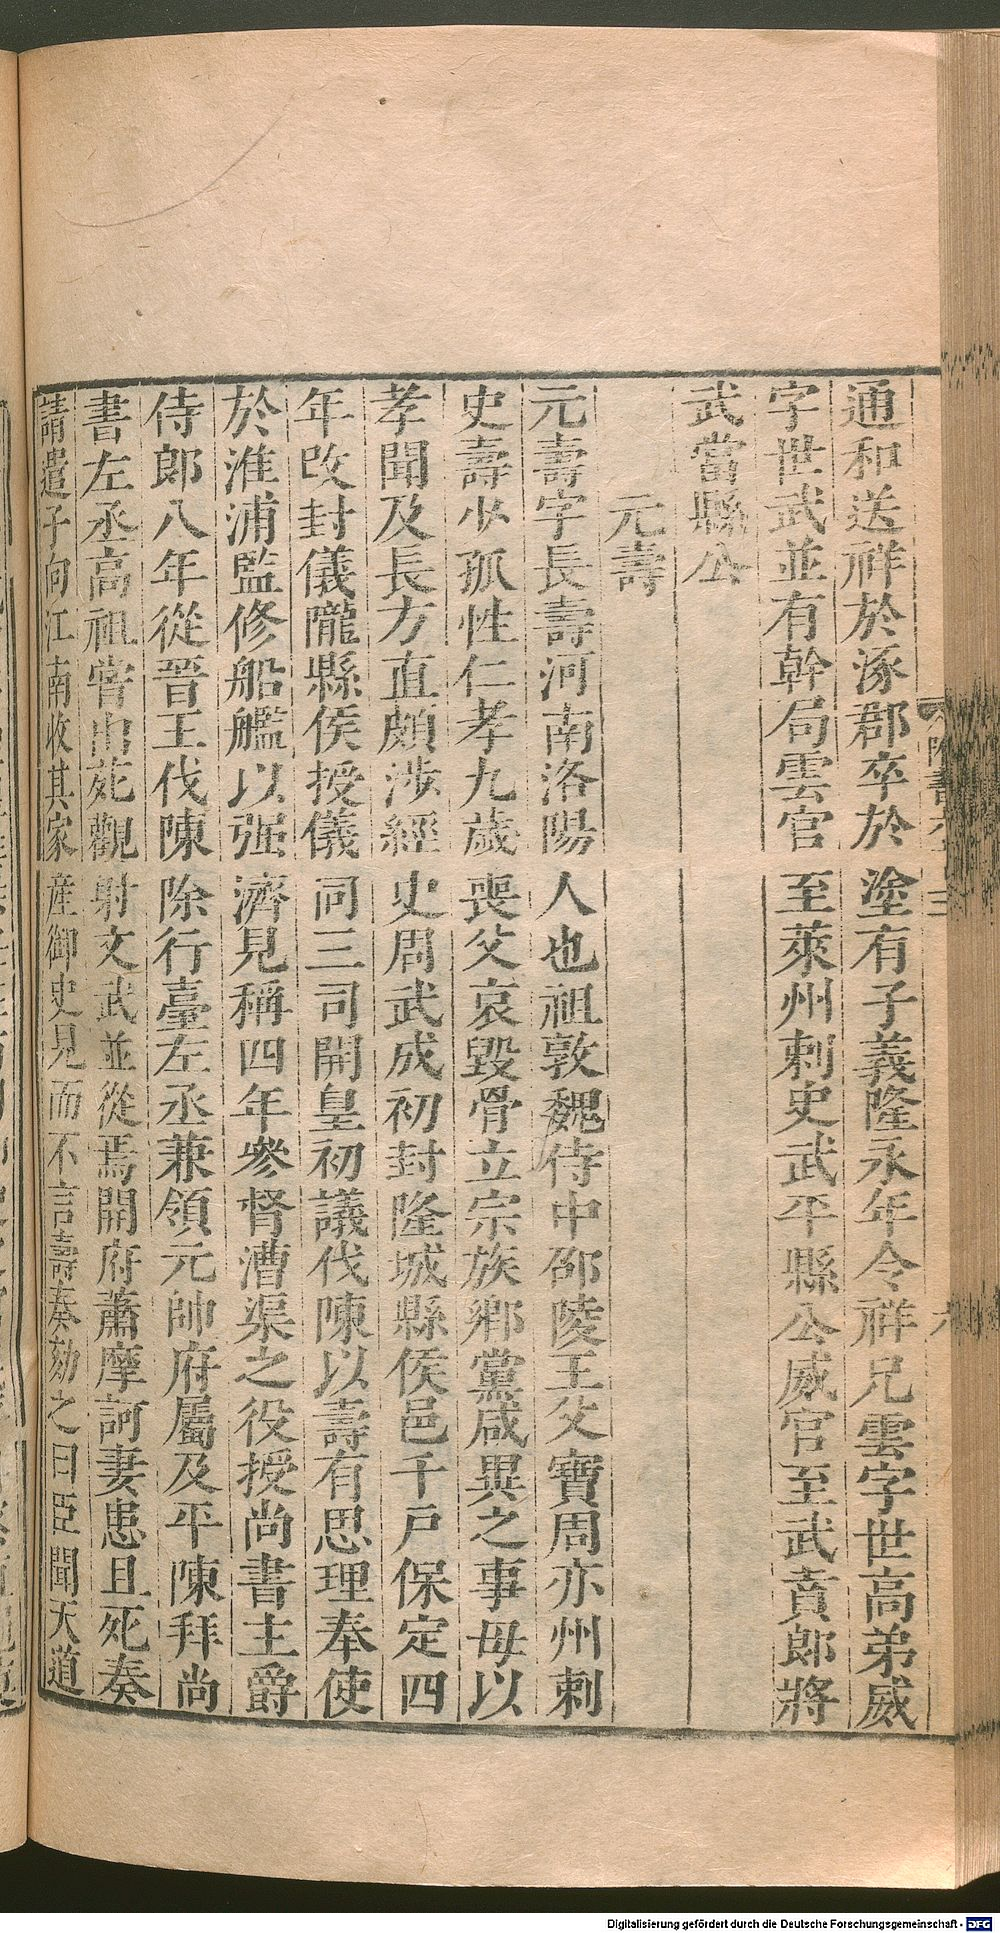 通和送祥於涿郡卒於塗有子義隆永年令祥兄雲字世高弟威
字世武並有幹局雲官至萊州刺史武平縣公威官至武賁郎將
武當縣公
元壽
元壽字長壽河南洛陽人也祖敦魏侍中邵陵王父寶周亦州刺
史壽少孤性仁孝九歲喪父哀毀骨立宗族鄉黨咸異之事母以
孝聞及長方直頗涉經史周武成初封隆城縣侯邑千戶保定四
年改封儀隴縣侯授儀同三司開皇初議伐陳以壽有思理奉使
於淮浦監修船艦以强濟見稱四年參督漕渠之役授尚書主爵
侍郎八年從晉王伐陳除行臺左丞兼領元帥府屬及平陳拜尚
書左丞高祖嘗出苑觀射文武並從焉開府蕭摩訶妻患且死奏
請遣子向江南收其家產御史見而不言壽奏劾之曰臣聞天道
Digitalisierung gefördert durch die Deutsche Forschungsgemeinschaft - DFG